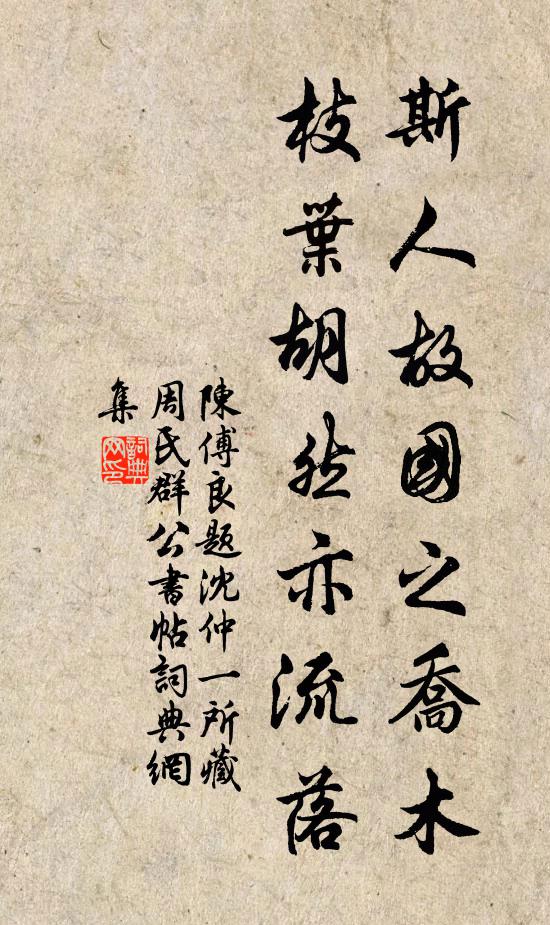 斯人故國之喬木
枝葉胡然亦流落
陳傅良題沈仲一所藏
周氏群公書帖詞典網
集
詞典
网印